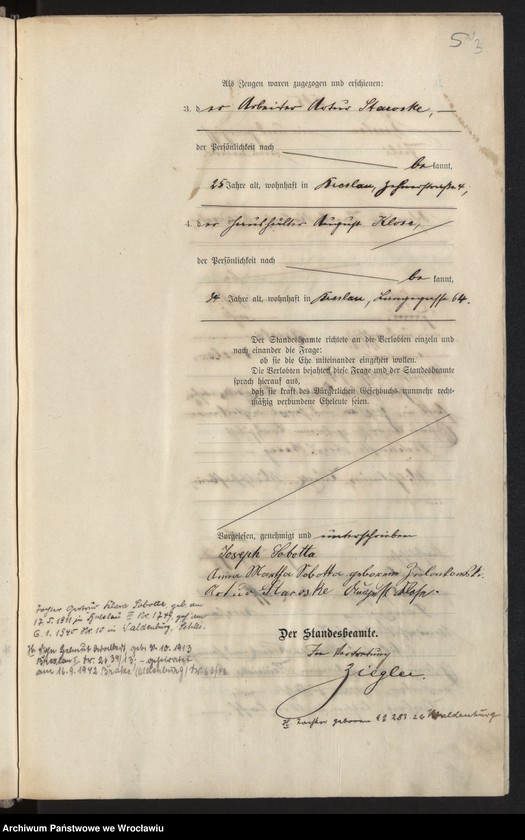 5
3
Als Zeugen waren zugezogen und erschienen:
3. der Arbeiter Artur Staroske,
der Persönlichkeit nach
be kannt,
25 Jahre alt, wohnhaft in Breslau,
4. der Haushälter August Klose,
der Persönlichkeit nach
be kannt,
34 Jahre alt, wohnhaft in Breslau, Langegasse 64.
Der Standesbeamte richtete an die Verlobten einzeln und
nach einander die Frage:
ob sie die Ehe miteinander eingehen wollen.
Die Verlobten bejahten diese Frage und der Standesbeamte
sprach hierauf aus,
daß sie kraft des Bürgerlichen Gesetzbuchs nunmehr recht-
mäßig verbundene Eheleute seien.
Vorgelesen, genehmigt und unterschrieben
Joseph Sobotta
Anna Martha Sobotta geborene
Artur Staroske August Klose.
Der Standesbeamte.
In Vertretung
Ziegler.
Tochter Gertrud Klara Sobotta, geb. am
17.5.1911 in Breslau II Nr.
6.1.1940 Nr. 10 in Waldenburg, Schles.
Sohn Helmut geb. 10.1913
Breslau
am 16.9.1942
Tochter geboren Waldenburg
Archiwum Państwowe we Wrocławiu